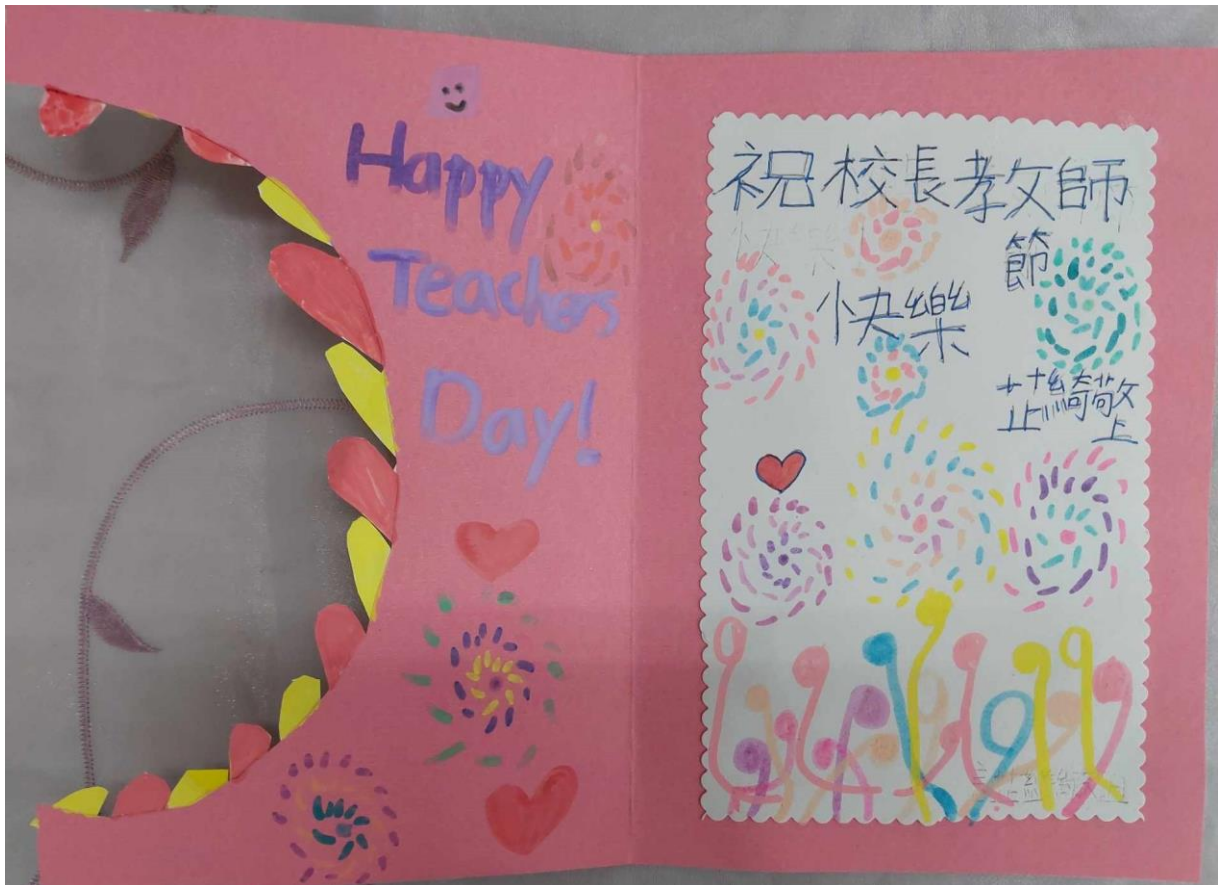 Happy
Teachers
Day!
祝校長教師
節
快樂
芷綺敬
上